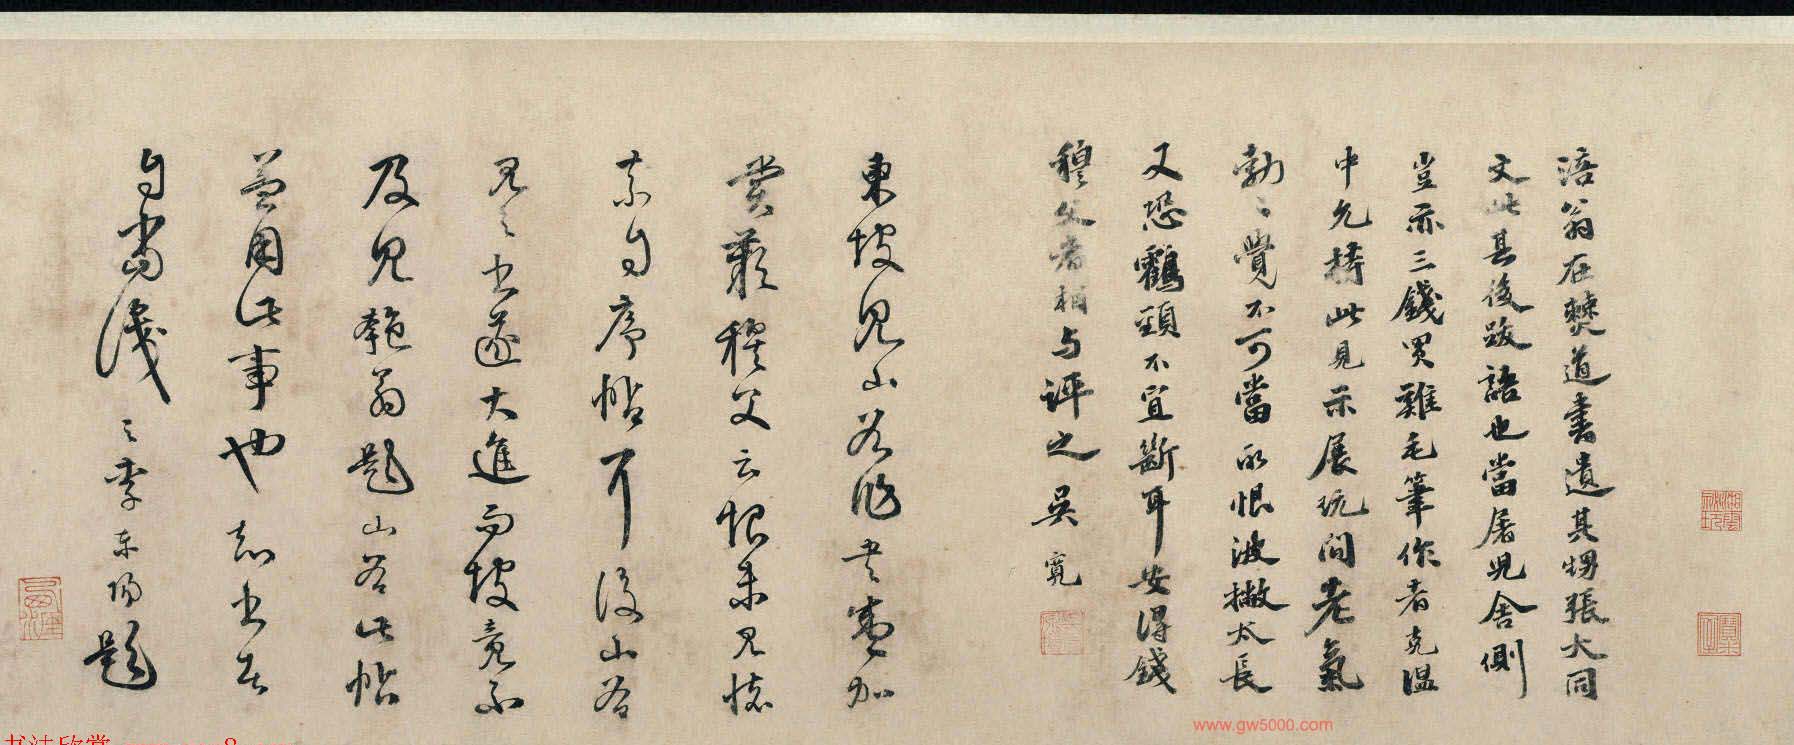 涪翁在僰道書遺其甥張大同
文此其後跋語也當屠児舎側
豈亦三錢買雞毛筆作者克温
中允持此見示展玩间老氣
勃〻覺不可當所恨波撇太長
又恐鶴頸不宜斷耳安得錢
穆父者相与評之 吳寬
東坡見山谷作書輒加
賞歎穆父云恨未見懷
素自序帖耳後山谷
見之書遂大進而坡竟不
及見匏翁題山谷此帖
蓋用此事也知書者
自當識之李東陽題
www.gw5000.com
书法欣赏